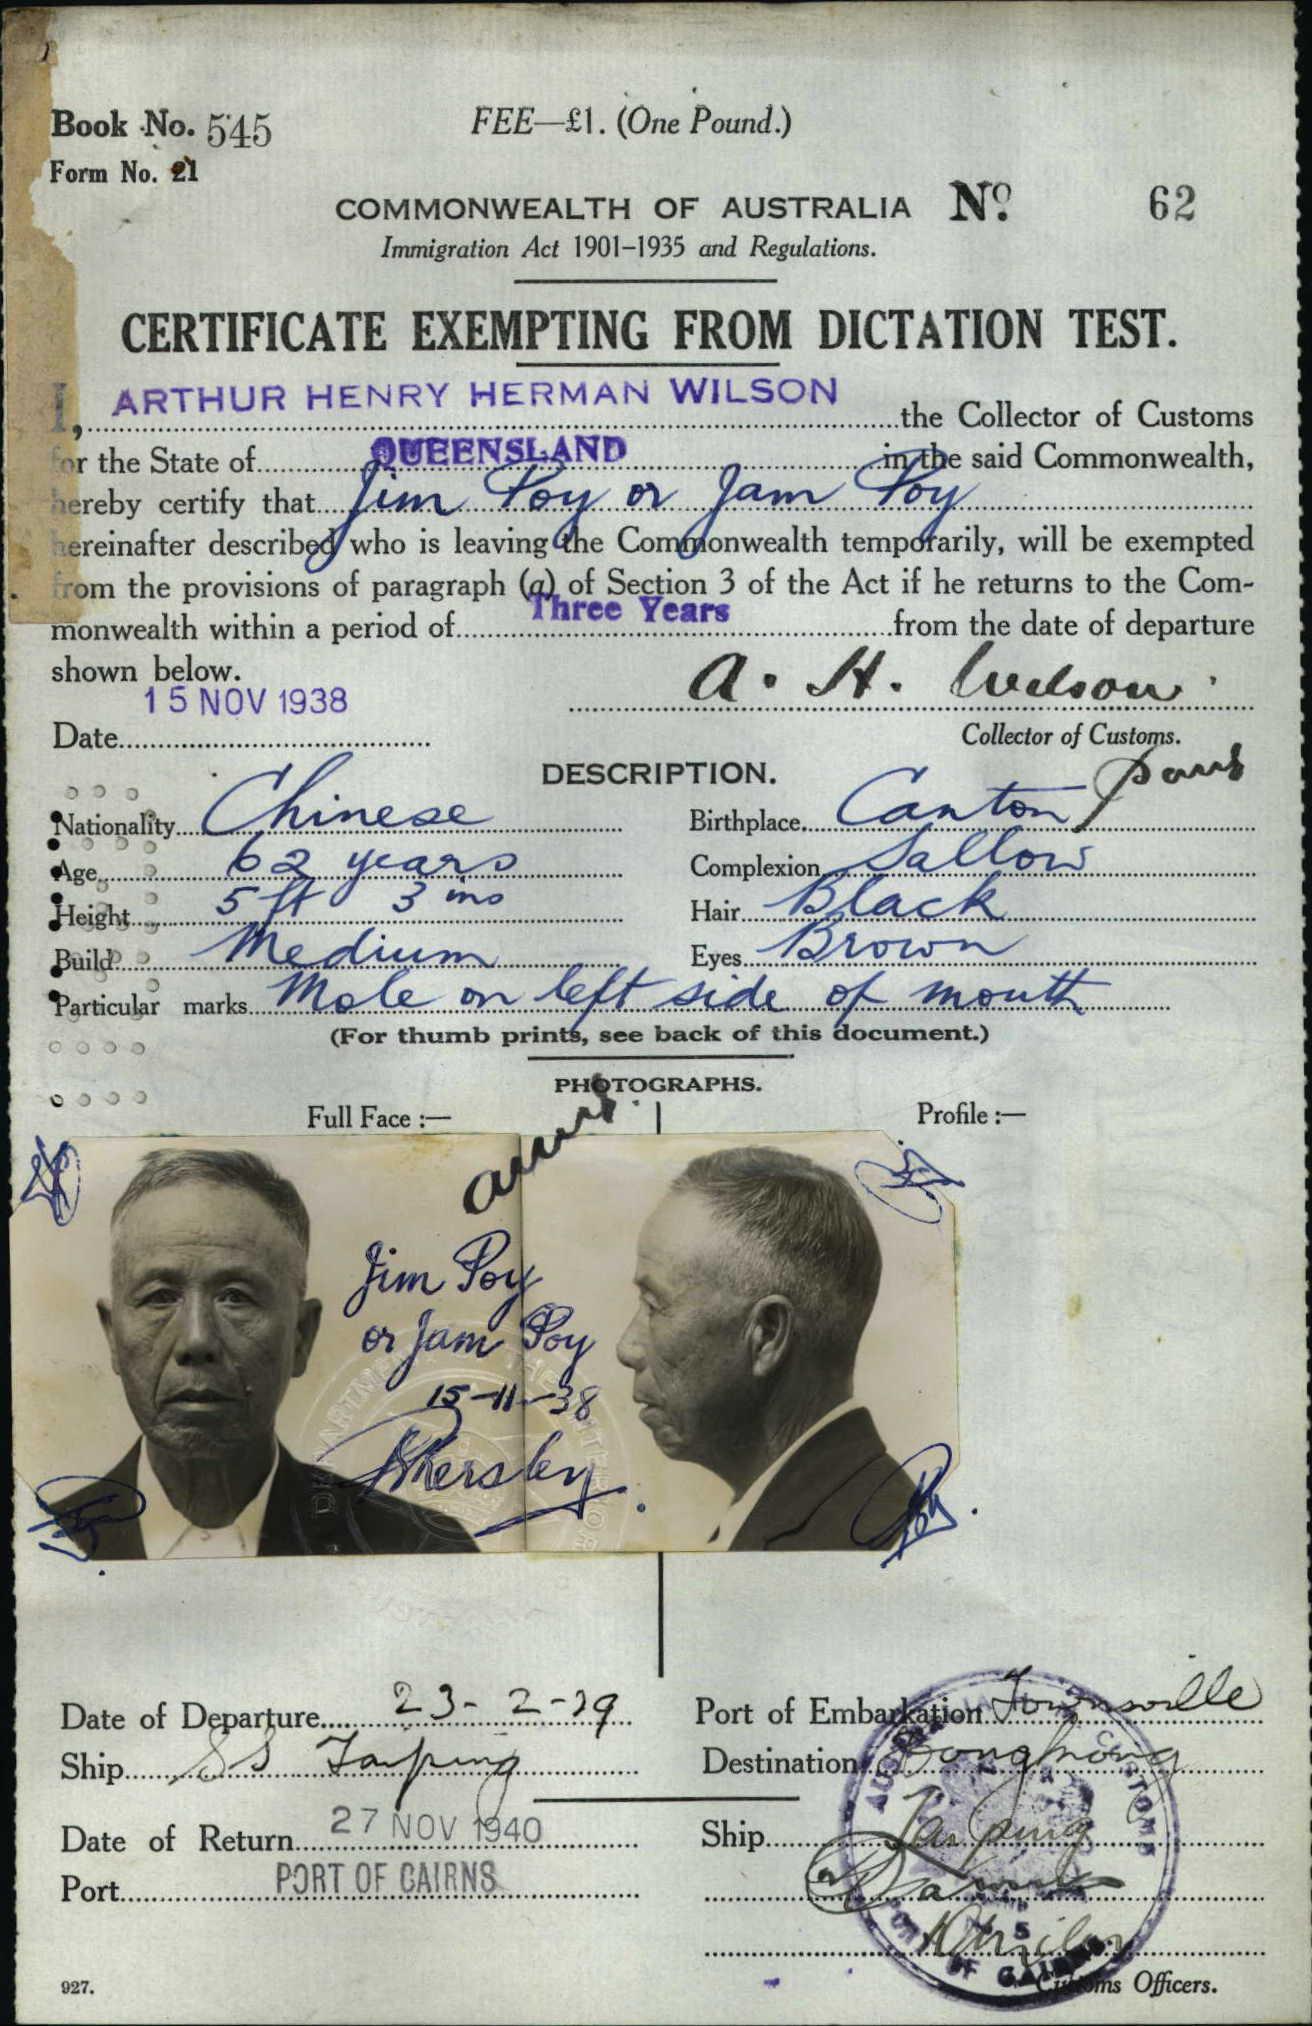 Book No. 545
FEE—£1. (One Pound.)
Form No. 21
COMMONWEALTH OF AUSTRALIA No. 62
Immigration Act 1901–1935 and Regulations.
CERTIFICATE EXEMPTING FROM DICTATION TEST.
I, ARTHUR HENRY HERMAN WILSON the Collector of Customs
for the State of QUEENSLAND in the said Commonwealth,
hereby certify that Jim Poy or Jam Poy
hereinafter described who is leaving the Commonwealth temporarily, will be exempted
from the provisions of paragraph (a) of Section 3 of the Act if he returns to the Com-
monwealth within a period of Three Years from the date of departure
shown below.
15 NOV 1938
A. H. Wilson
Date
Collector of Customs.
DESCRIPTION.
Nationality Chinese
Birthplace Canton
Age 62 years
Complexion Sallow
Height 5 ft 3 ins
Hair Black
Build Medium
Eyes Brown
Particular marks Mole on left side of mouth
(For thumb prints, see back of this document.)
PHOTOGRAPHS.
Full Face :—
Profile :—
Jim Poy
or Jam Poy
15-11-38
Date of Departure 23-2-39
Port of Embarkation Townsville
Ship SS Taiping
Destination Hongkong
Date of Return 27 NOV 1940
Ship Taiping
Port PORT OF CAIRNS
PORT OF CAIRNS
Customs Officers.
927.